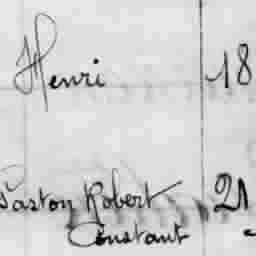 Henri 18
Gaston Robert 21
Constant